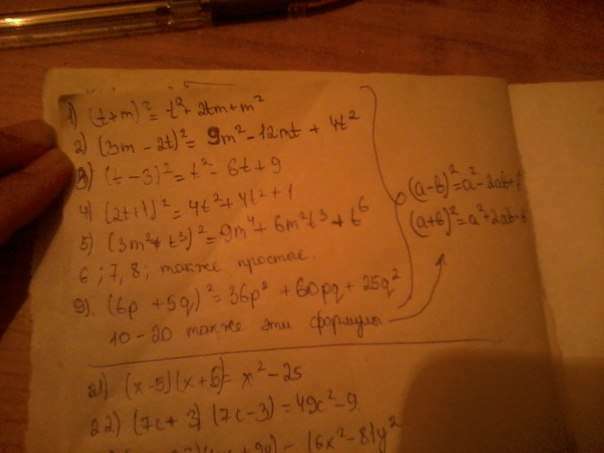 1) (t+m)² = t² + 2tm + m²
2) (3m - 2t)² = 9m² - 12mt + 4t²
3) (t - 3)² = t² - 6t + 9
4) (2t+1)² = 4t² + 4t² + 1
5) (3m² + t³)² = 9m⁴ + 6m²t³ + t⁶
6; 7, 8; также простые.
9). (6p + 5q)² = 36p² + 60pq + 25q²
10 - 20 также эти формулы
(a-b)² = a² - 2ab +
(a+b)² = a² + 2ab +
21) (x-5)(x+5) = x² - 25
22) (7c + 3)(7c - 3) = 49c² - 9
16x² - 81y²